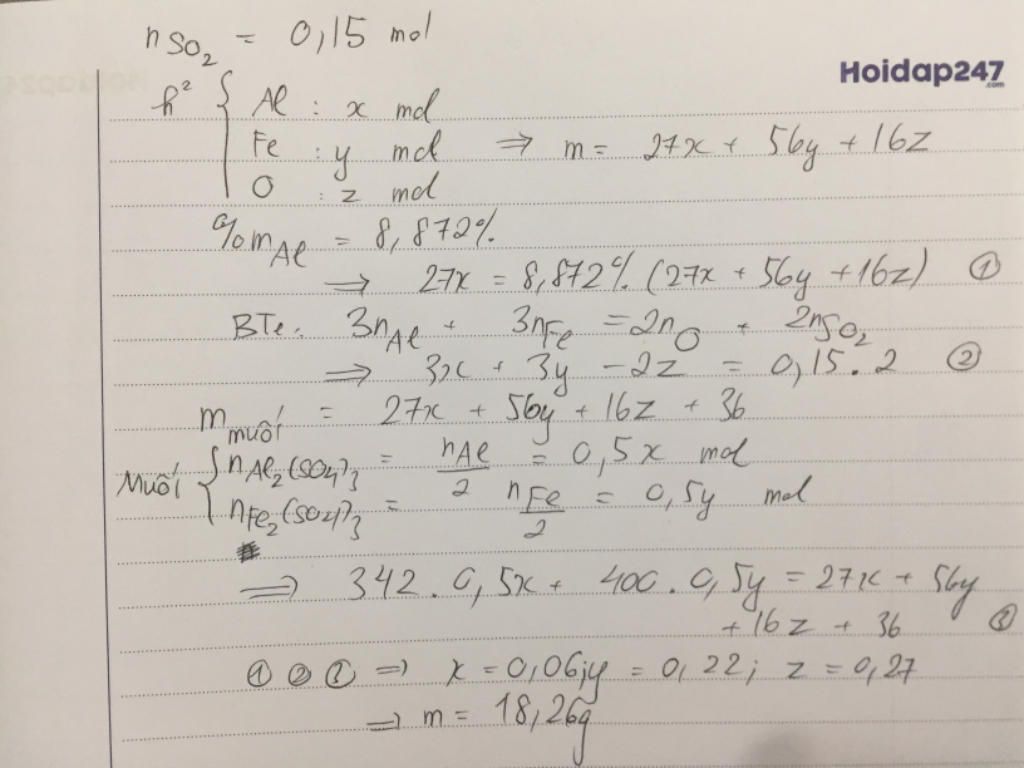 nSO2 = 0,15 mol
Hoidap247
.com
h² { Al : x mol
Fe : y mol ⇒ m = 27x + 56y + 16z
O : z mol
%mAl = 8,872%
⇒ 27x = 8,872% (27x + 56y + 16z) ①
BTe: 3nAl + 3nFe = 2nO + 2nSO2
⇒ 3x + 3y - 2z = 0,15 . 2 ②
m muối = 27x + 56y + 16z + 36
Muối { nAl2(SO4)3 = nAl/2 = 0,5x mol
nFe2(SO4)3 = nFe/2 = 0,5y mol
⇒ 342 . 0,5x + 400 . 0,5y = 27x + 56y
+ 16z + 36 ③
① ② ③ ⇒ x = 0,06; y = 0,22; z = 0,27
⇒ m = 18,26g